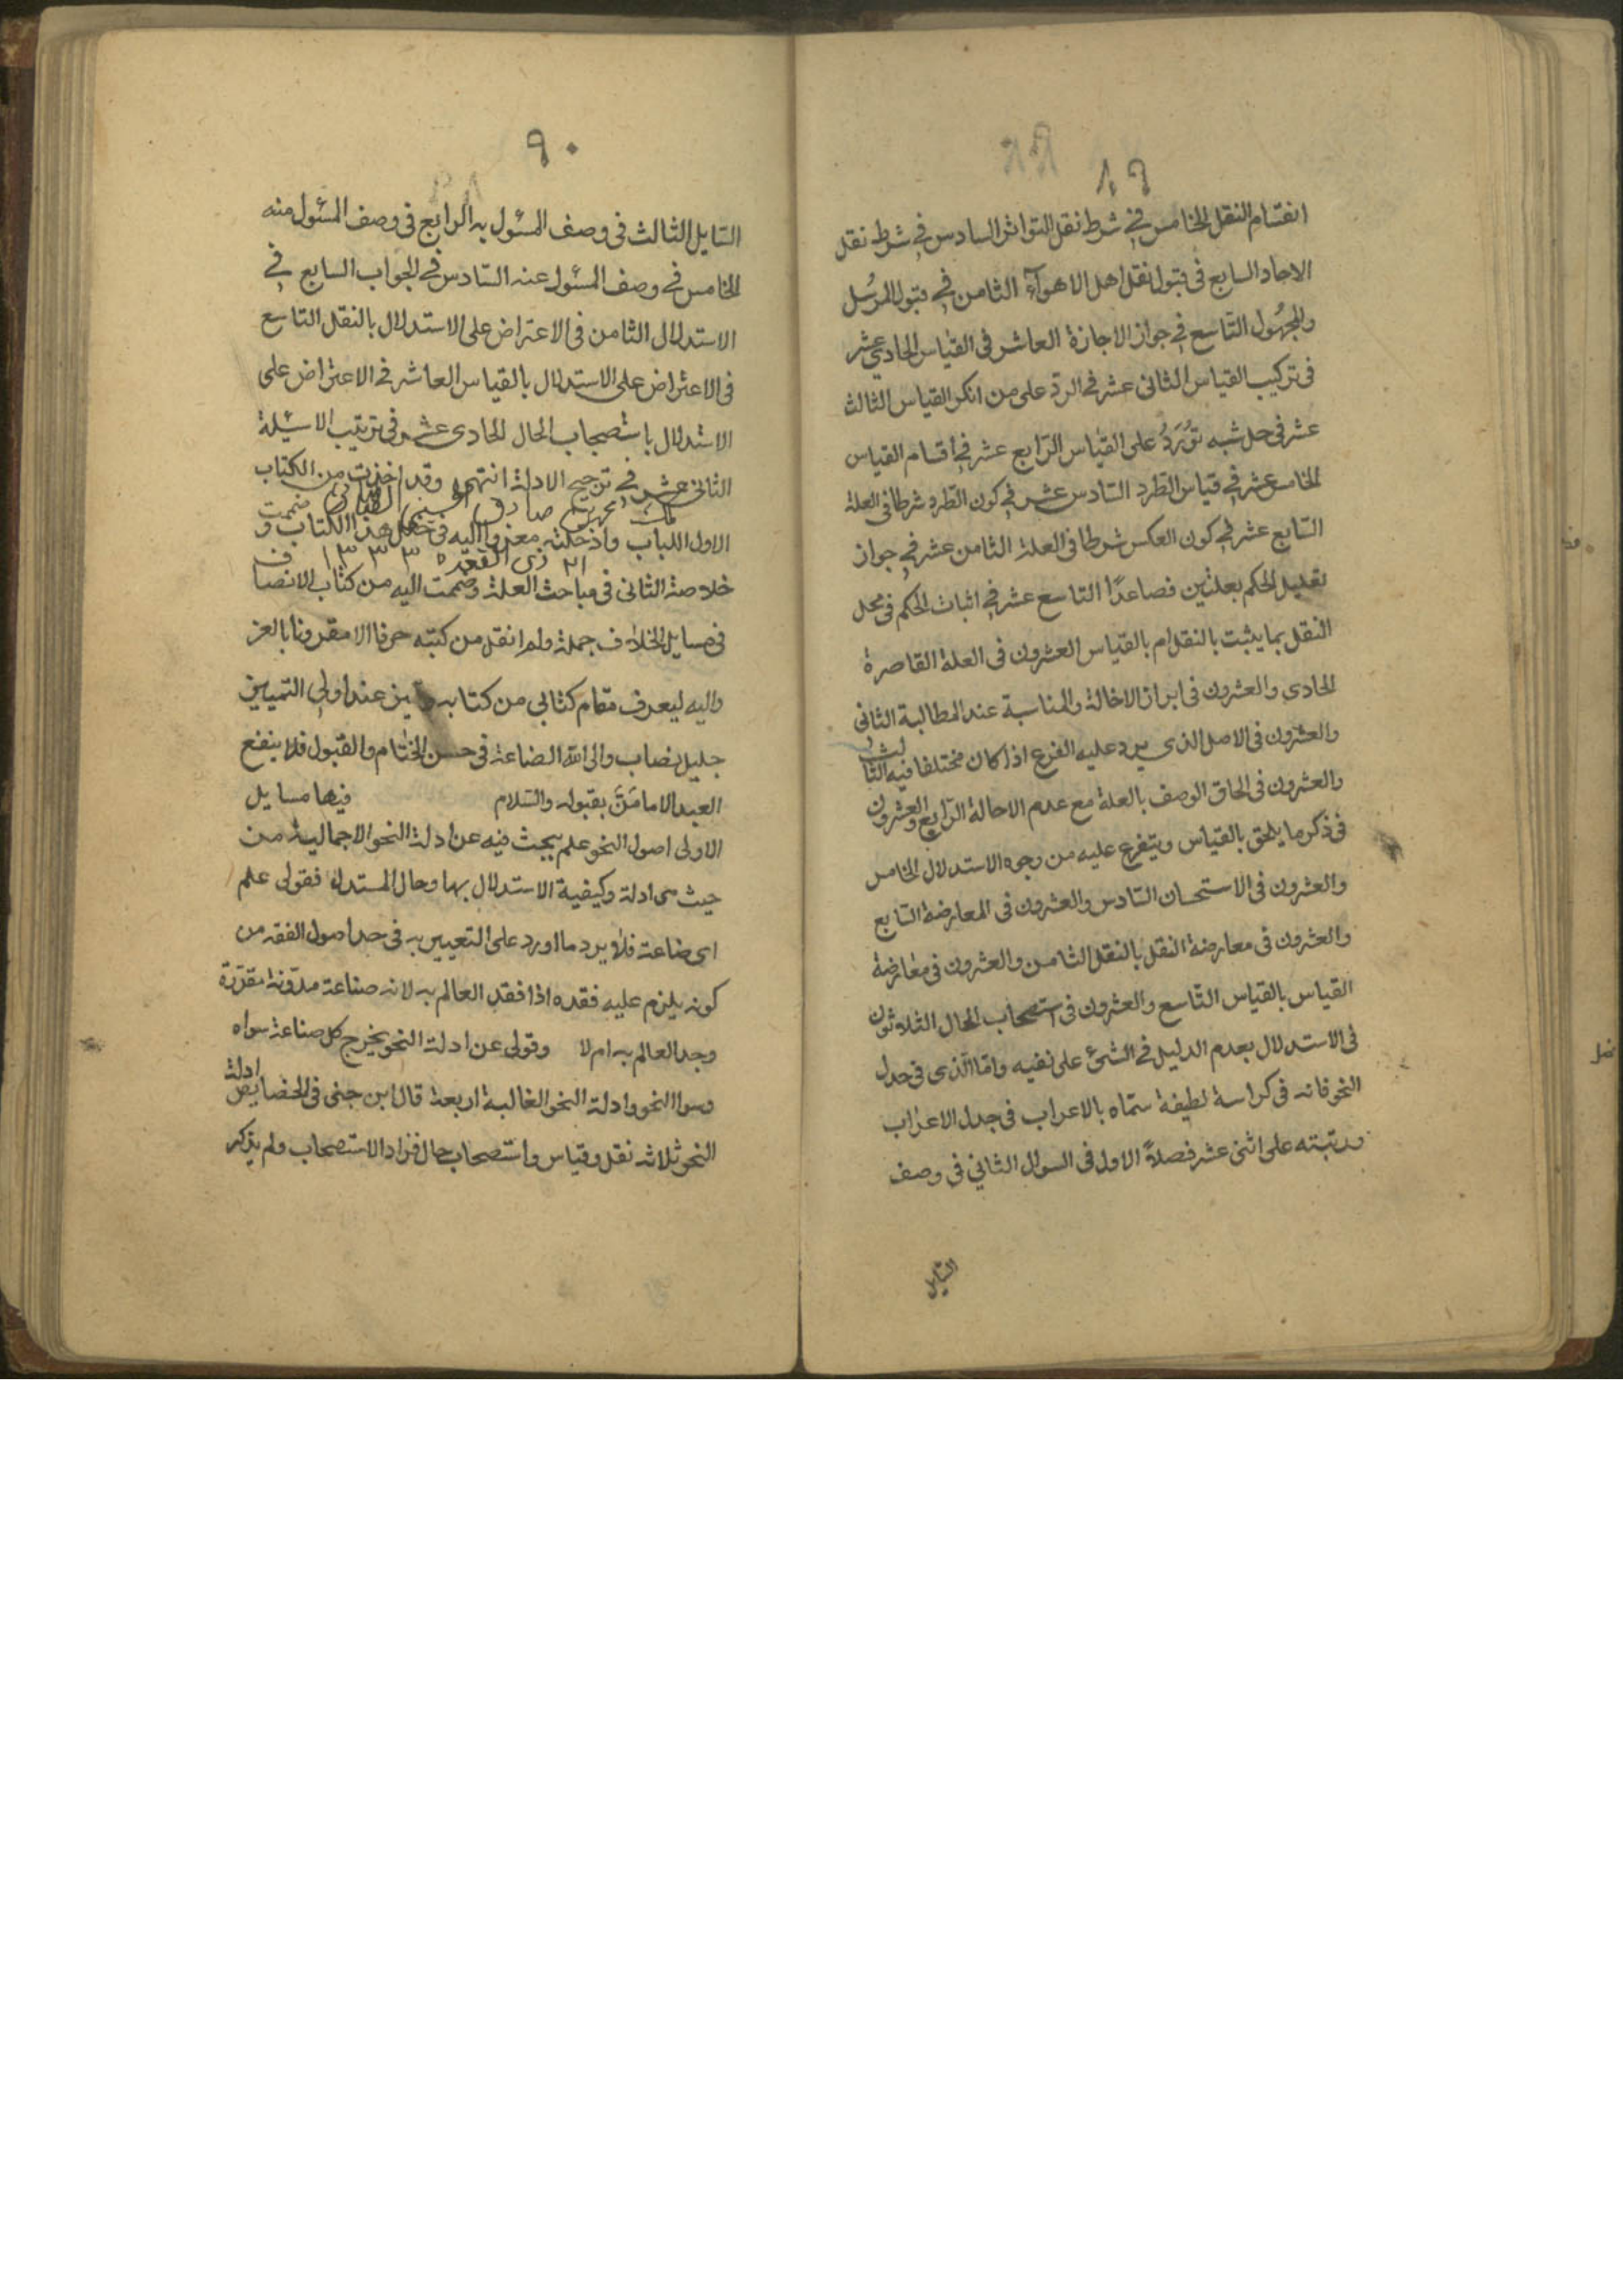 ٨٩
انقسام النقل الخامس في شرط نقل التواتر السادس في شرط نقل
الاحاد السابع في قبول نقل اهل الاهوآء الثامن في قبول المرسُل
والمجهُول التّاسع في جواز الاجازة العاشر في القياس الحادي عشر
في تركيب القياس الثاني عشر في الردّ على من انكر القياس الثالث
عشر في حل شبه تُورَدُ على القياس الرّابع عشر في اقسام القياس
الخامس عشر في قياس الطّرد السّادس عشر في كون الطّرد شرطا في العلة
السّابع عشر في كون العكس شرطا في العلة الثامن عشر في جواز
تعليل الحكم بعلتين فصاعدًا التاسع عشر في اثبات الحكم في محل
النقل بما يثبت بالنقل ام بالقياس العشرون في العلة القاصرة
الحادي والعشرون في ابراز الاخالة والمناسبة عند المطالبة الثاني
والعشرون في الاصل الذي يرد عليه الفرع اذا كان مختلفا فيه الثالث
والعشرون في الحاق الوصف بالعلة مع عدم الاحالة الرّابع والعشرون
في ذكر ما يلحق بالقياس ويتفرع عليه من وجوه الاستدلال الخامس
والعشرون في الاستحسان السّادس والعشرون في المعارضة السّابع
والعشرون في معارضة النقل بالنقل الثامن والعشرون في معارضة
القياس بالقياس التّاسع والعشرون في استصحاب الحال الثلاثون
في الاستدلال بعدم الدليل في الشئ على نفيه وامّا الّذي في جدل
النحو فانه في كراسة لطيفة سمّاه بالاعراب في جدل الاعراب
ورتبته على اثنى عشر فصلاً الاول في السوال الثاني في وصف
السّايل
٩٠
السّايل الثالث في وصف المسئول به الرابع في وصف المسئول منه
الخامس في وصف المسئول عنه السّادس في الجواب السابع في
الاستدلال الثامن في الاعتراض على الاستدلال بالنقل التاسع
في الاعتراض على الاستدلال بالقياس العاشر في الاعتراض على
الاستدلال باستصحاب الحال الحادى عشر في ترتيب الاسئلة
الثاني عشر في ترجيح الادلة انتهى وقد اخذت من الكتاب
صادق
الاول اللباب وادخلته معزوا اليه في خلل هذا الكتاب و ضممت
٢١ ذى القعده ١٣٣٣
خلاصة الثاني في مباحث العلة وضممت اليه من كتاب الانصاف
في مسايل الخلاف جملة ولم انقل من كتبه حرفا الا مقرونا بالعز
واليه ليعرف مقام كتابي من كتابه ويتميز عند اولي التمييز
جليل نصاب والى الله الضاعة في حسن الختام والقبول فلا ينفع
العبد الا ما مَنَّ بقبوله والسّلام فيها مسايل
الاولى اصول النحو علم يبحث فيه عن ادلة النحو الاجمالية من
حيث هى ادلة وكيفية الاستدلال بها وحال المستدل فقولى علم
اى ضاعة فلا يرد ما اورد على التعبير به في حد اصول الفقه من
كونه يلزم عليه فقده اذا فقد العالم به لانه صناعة مدوّنة مقرّرة
وجد العالم به ام لا وقولى عن ادلة النحو يخرج كل صناعة سواه
وسوا النحو وادلة النحو الغالبة اربعة قال ابن جنى في الخصايص ادلة
النحو ثلاثه نقل وقياس واستصحاب حال فزاد الاستصحاب ولم يذكر